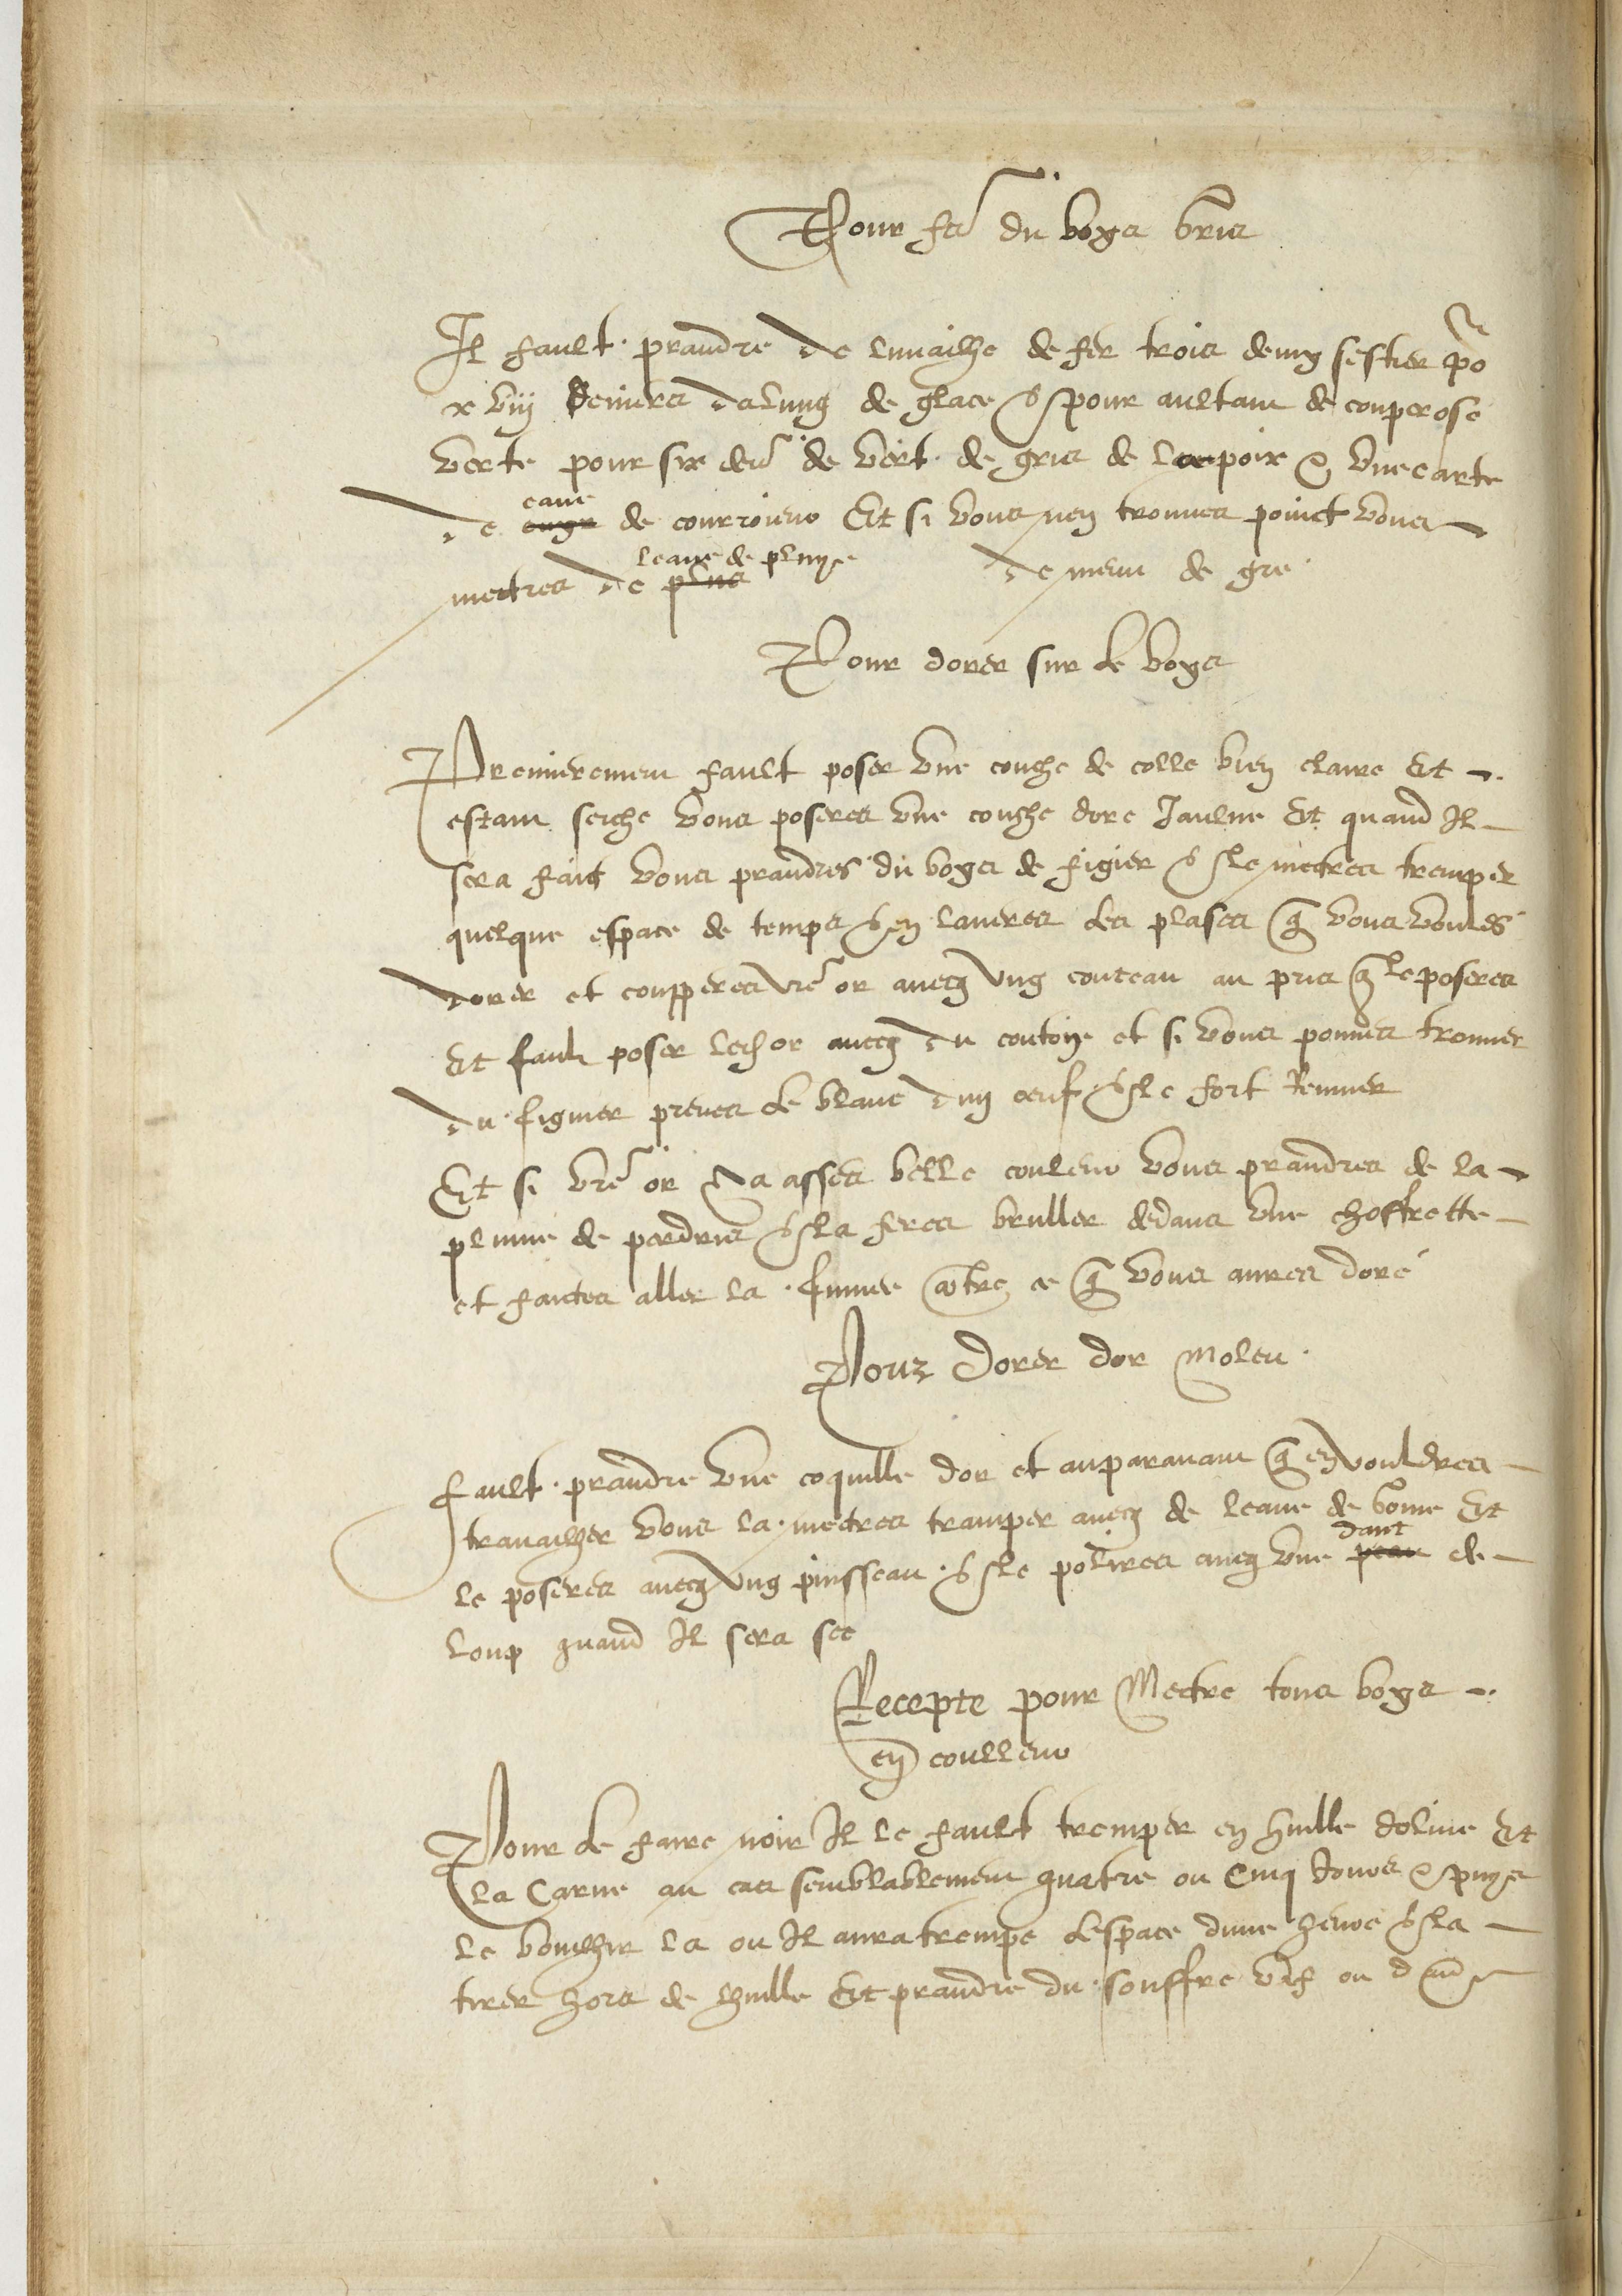 Pour fer du boys bruc
Il fault prandre de limailhe de fer trois demy sestier po
xviij deniers dalung de glace & pour aultant de couperose
verte pour six der de vert de gris de la poix & une carte
de eaue de courroieur Et si vous nen trouves poinct vous
mectres de leaue de pluye de mesme de gre
Pour dorer sur le boys
Premierement fault poser une couche de colle bien claire Et
estant seiche vous poseres une couche dore Jaulne Et quand Il
sera faict vous prandres du boys de figier & le mectres tremper
quelque espace de temps & en laveres les plases q vous voules
dorer et coupperes vre or avecq ung couteau au pris q le poseres
Et fault poser led or avecq du coutong et si vous pouves trouver
du figuier prenes le blanc dun oeuf & le fort Remuer
Et si vre or na asses belle couleur vous prandres de la
plume de perdris & la feres bruller dedans une choffrette
et faictes aller la fumee contre ce q vous aures doré
Pour dorer dor molu
fault prandre une coquille dor et auparavant q en vouldres
travailher vous la mectres tramper avecq de leaue de gome Et
le poseres avecq ung pinsseau & le polires avecq une dant de
loup quand Il sera sec
Recepte pour Mectre tous boys
en coulleur
Pour le faire noir Il le fault tremper en huille dolive Et
la Carne au cas semblablement quatre ou cinq Jours & puys
le bouilhir la ou Il aura trempe lespace dune heure & la
tirer hors de lhuille Et prandre du souffre vif ou